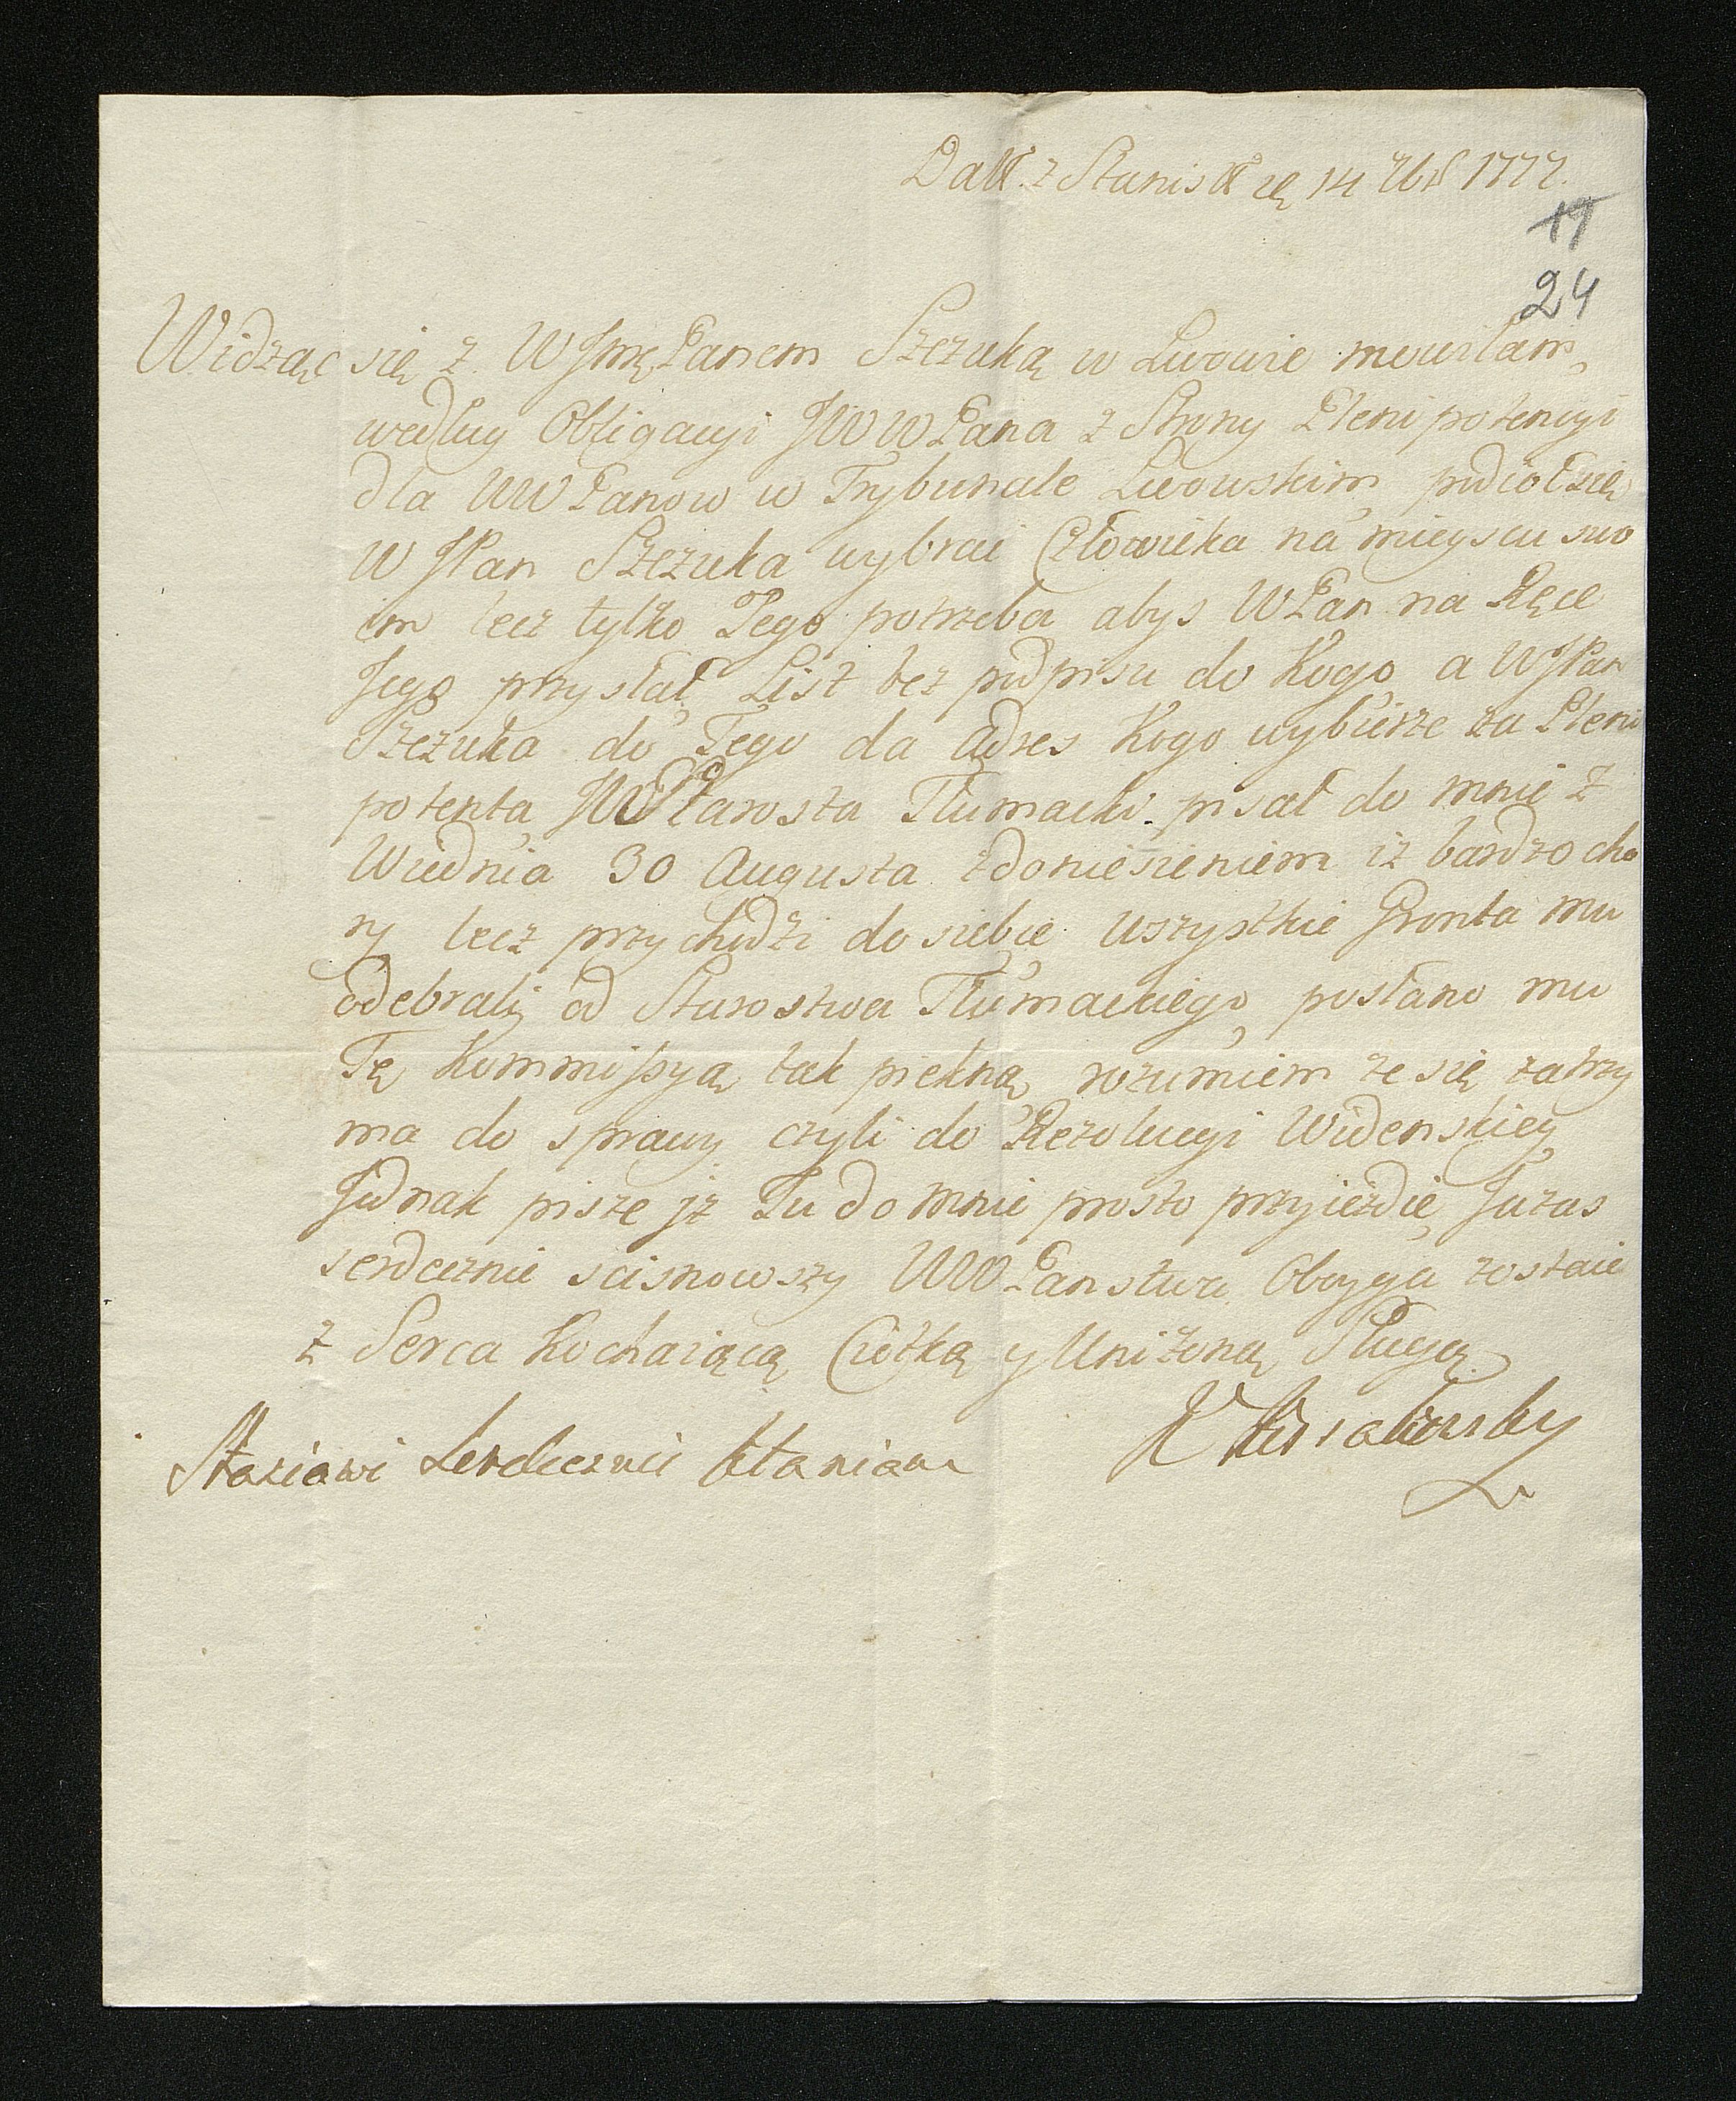 Datt. z Stanisłł dę 14 7br 1777.
19
24
Widząc się z WJmę Panem Szczuką w Lwowie mowiłam,
według Obligacyi JWWPana z Strony Plenipotencyi
dla WWPanow w Trybunale Lwowskim, podiołsię
WJPan Szczuka wybrać Człowieka na mieyscu swo
im lecz tylko Tego potrzeba abys WPan na Ręce
Jego przysłał List bez podpisu do Kogo, a WJPan
Szczuka do Tego da adres Kogo wybierze za Pleni
potenta, JW Starosta Tłumacki pisał do mnie z
Wiednia 30 Augusta zdoniesieniem iż bardzo cho
ry lecz przychodzi do siebie wszystkie Gronta mu
odebrali od Starostwa Tłumackiego, posłano mu
Tę Kommissyą tak piekną, rozumiem że się zatrzy
ma do sprawy czyli do Rezolucyi Widenskiey
Jednak pisze jż Tu do mnie prosto przyieżdie, Ja zas
serdecznie scisnowszy WWPanstwa Oboyga zostaie
z Serca Kochaiącą Ciotką y Uniżoną Sługą
Stasiowi Serdecznie kłaniam